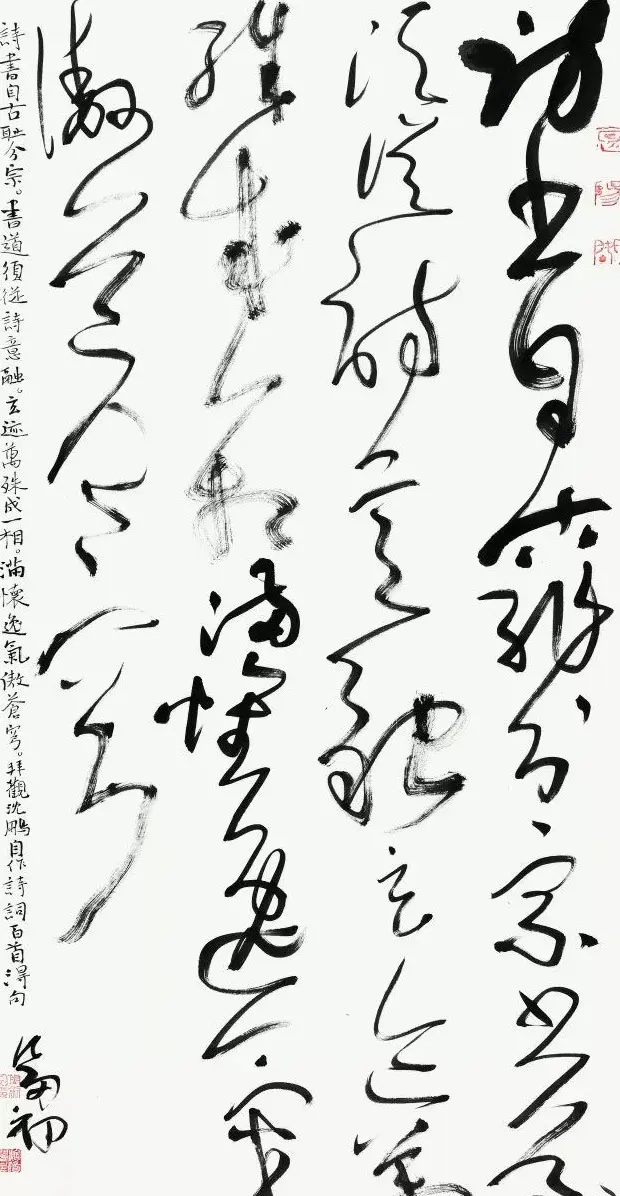 詩書自古耻分宗書道
須從詩意融玄迹萬
殊成一相滿懷逸氣
傲蒼穹
詩書自古耻分宗。書道須從詩意融。玄迹萬殊成一相。滿懷逸氣傲蒼穹。拜觀沈鵬自作詩詞百首得句
初